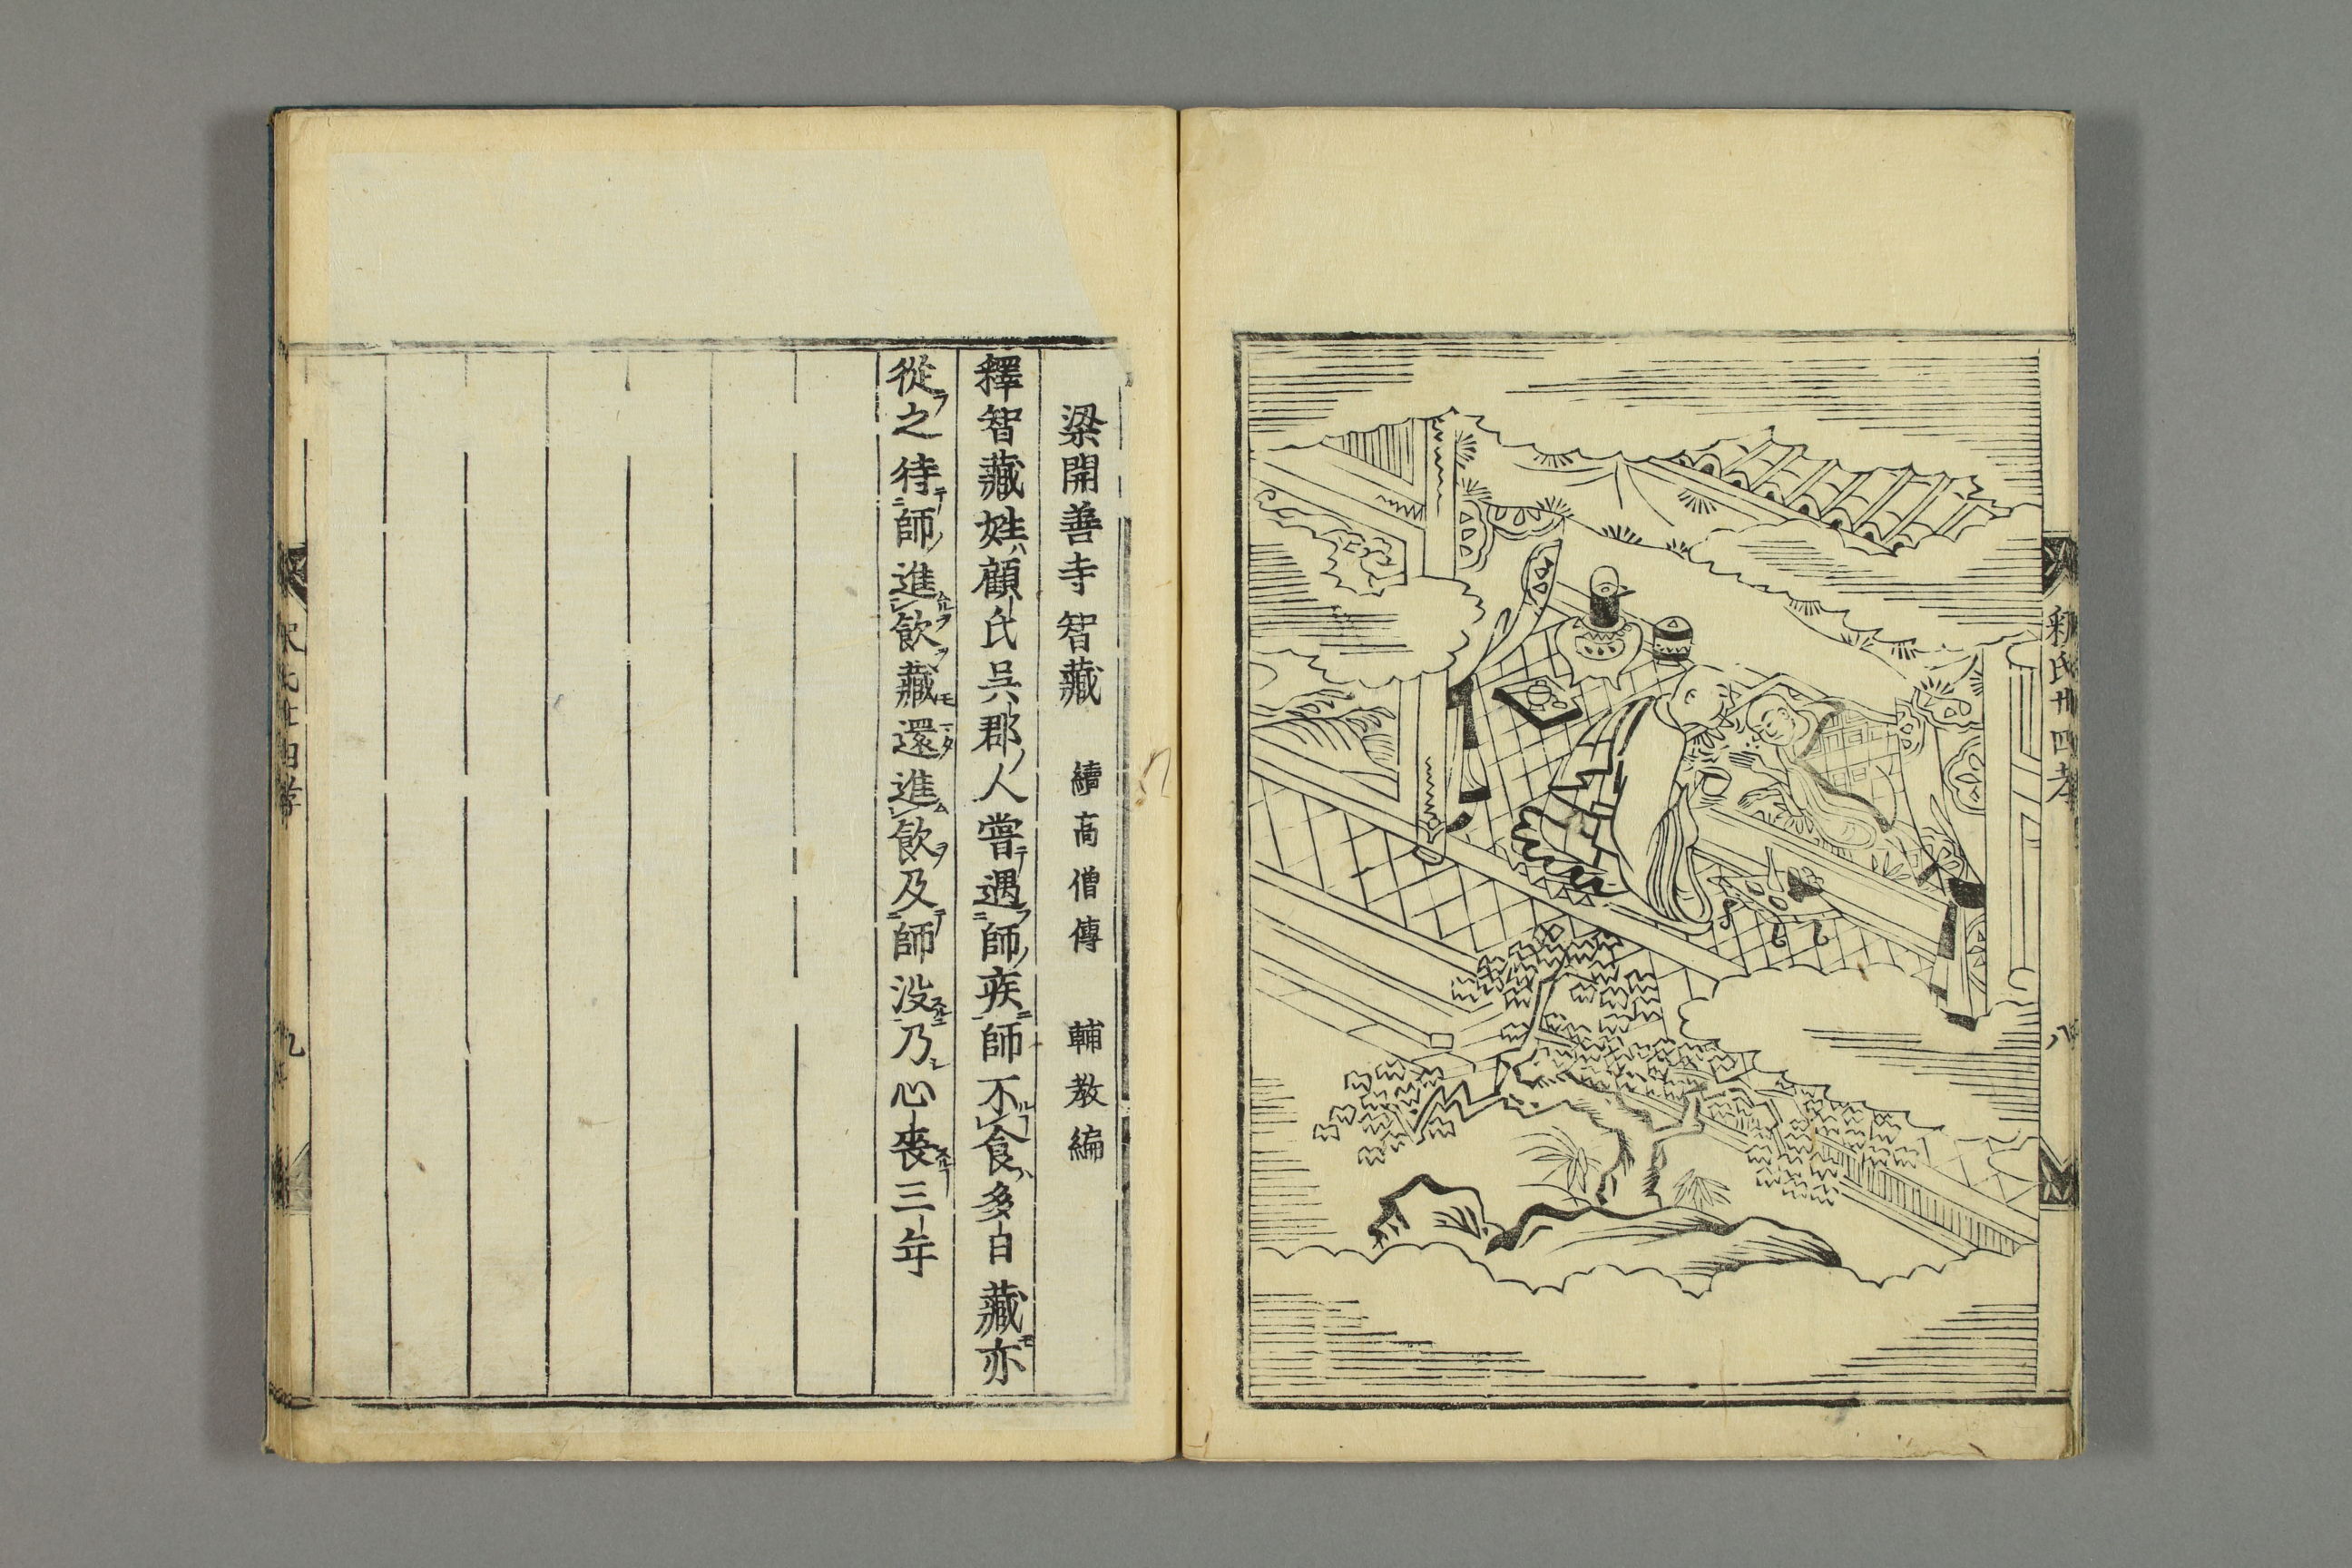 釈氏廿四孝
八
梁開善寺智藏 續高僧傳 輔教編
釋智藏姓顧氏呉郡人嘗遇師疾師不食多日藏亦
從之待師進飲藏還進飲及師没乃心喪三年
九